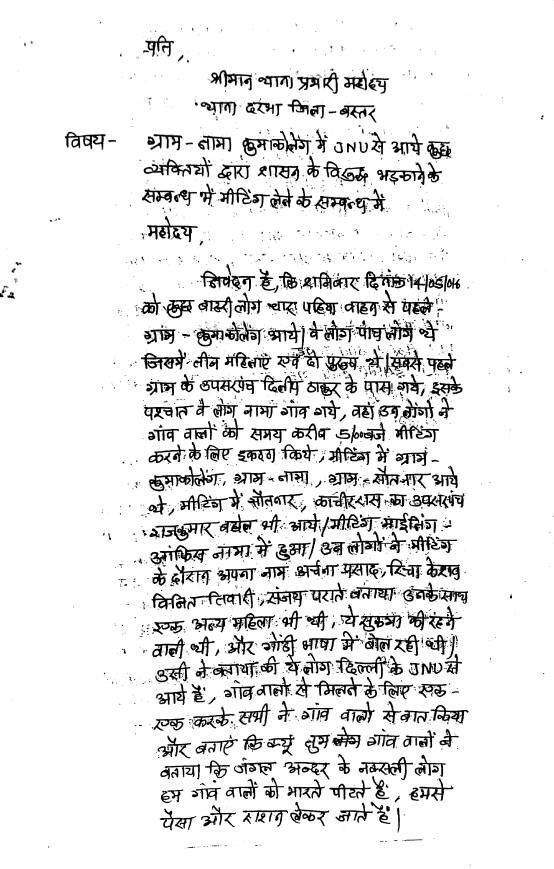 प्रति,
श्रीमान थाना प्रभारी महोदय
थाना दरभा जिला - बस्तर
विषय - ग्राम - नामा कुमाकोलेंग में JNU से आये कुछ
व्यक्तियों द्वारा शासन के विरुद्ध भड़काने के
सम्बन्ध में मीटिंग लेने के सम्बन्ध में
महोदय,
निवेदन है, कि शनिवार दिनांक 14/05/016
को कुछ बाहरी लोग चार पहिया वाहन से पहले
ग्राम - कुमाकोलेंग आये। वे लोग पांच लोग थे
जिसमें तीन महिलाएं एवं दो पुरुष थे। सबसे पहले
ग्राम के उपसरपंच दिलीप ठाकुर के पास गये, इसके
पश्चात वे लोग नामा गांव गये, वहां उन लोगों ने
गांव वालों को समय करीब 5/00 बजे मीटिंग
करने के लिए इकठ्ठा किये, मीटिंग में ग्राम -
कुमाकोलेंग, ग्राम - नामा, ग्राम - सौतनार आये
थे, मीटिंग में सौतनार, का उपसरपंच
राजकुमार बघेल भी आये। मीटिंग माईनिंग -
आफिस नामा में हुआ। उन लोगों ने मीटिंग
के दौरान अपना नाम अर्चना प्रसाद, रिचा केशव
विनित तिवारी, संजय पराते बताया उनके साथ
एक अन्य महिला भी थी, ये सुकमा की रहने
वाली थी, और गोंडी भाषा में बोल रही थी।
उसी ने बताया की ये लोग दिल्ली के JNU से
आये हैं, गांव वालों से मिलने के लिए एक -
एक करके सभी ने गांव वालों से बात किया
और बताएं कि क्यूं तुम लोग गांव वालों ने
बताया कि जंगल अन्दर के नक्सली लोग
हम गांव वालों को मारते पीटते हैं, हमसे
पैसा और राशन लेकर जाते हैं।